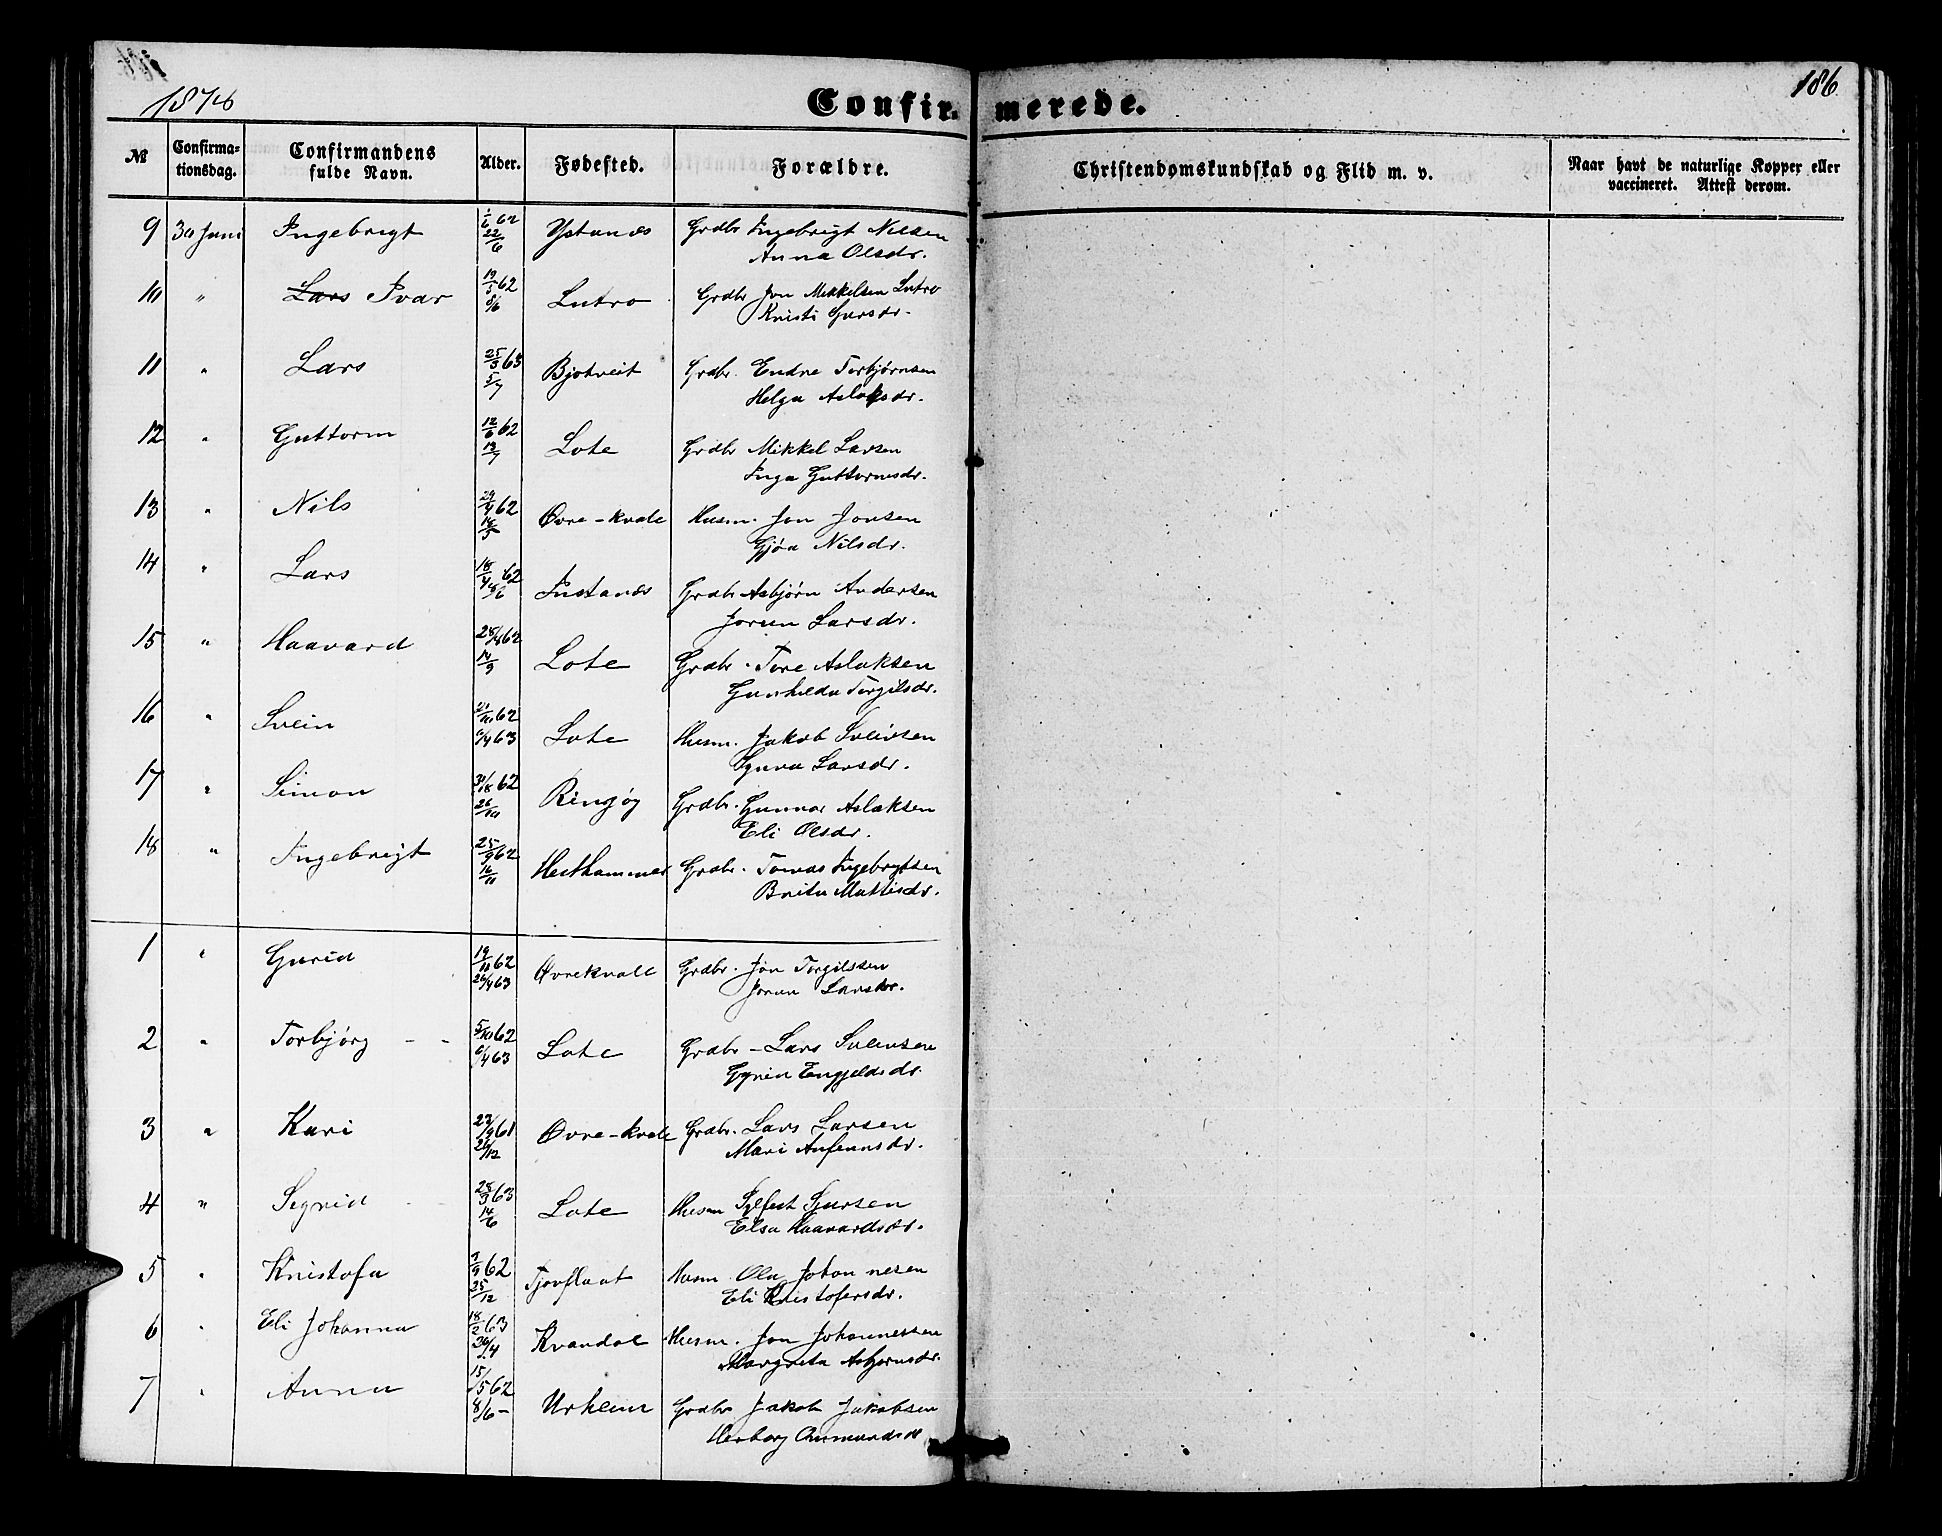 1876
186
Confirmerede.
№ | Confirmationsdag. | Confirmandens fulde Navn. | Alder. | Fødested. | Forældre. | Christendomskundskab og Flid m. v. | Naar havt de naturlige Kopper eller vaccineret. Attest derom.
9 | 30 Juni | Ingebrigt | 1/6 62 22/6 | Ystanes | Grdbr Ingebrigt Nilsen
Anna Olsdr.
10 | " | Ivar | 19/5 62 8/6 | Lutro | Grdbr Jon Mikkelsen Lutro
Kristi Gursdr.
11 | " | Lars | 25/3 63 5/7 | Bjotveit | Grdbr. Endre Torbjørnsen
Helga Aslaksdr.
12 | " | Guttorm | 12/6 62 13/7 | Lote | Grdbr Mikkel Larsen
Inga Guttormsdr.
13 | " | Nils | 29/4 62 | Øvre-kvale | Husm. Jon Jonsen
Gjøa Nilsdr.
14 | " | Lars | 18/4 62 | Instanes | Grdbr Asbjørn Andersen
Jorun Larsdr.
15 | " | Haavard | 28/8 62 14/9 | Lote | Grdbr. Tore Aslaksen
Gunhilda Torgilsdr.
16 | " | Svein | 21/10 62 6/4 63 | Lote | Husm. Jakob Sveinsen
Guro Larsdr.
17 | " | Simon | 62 26/10 | Ringøy | Grdbr. Gunnar Aslaksen
Eli Olsdr.
18 | " | Ingebrigt | 25/9 62 16/11 | Hesthammer | Grdbr. Tomas Ingebrigtsen
Brita Mattisdr.
1 | " | Gurid | 19/11 62 26/4 63 | Øvrekvale | Grdbr. Jon Torgilssen
Jorun Larsdtr.
2 | " | Torbjørg | 5/10 62 6/4 63 | Lote | Grdbr - Lars Sveinsen
Gyrid Engjeldsdr.
3 | " | Kari | 22/9 61 26/12 | Øvre-kvale | Grdbr. Lars Larsen
Mari Anfinnsdr.
4 | " | Sigrid | 28/3 63 14/6 | Lote | Husm Sylfest Sjursen
Elsa Haavardsdr.
5 | " | Kristofa | 7/9 62 25/12 | Tjoflaat | Husm. Ola Johannesen
Eli Kristofersdr.
6 | " | Eli Johanna | 18/2 63 26/4 | Kvandal | Husm. Jon Johannessen
Margreta Asbjørnsdr.
7 | " | Anna | 15/5 62 8/6 - | Urheim | Grdbr Jakob Jakobsen
Herborg Aamundsdr